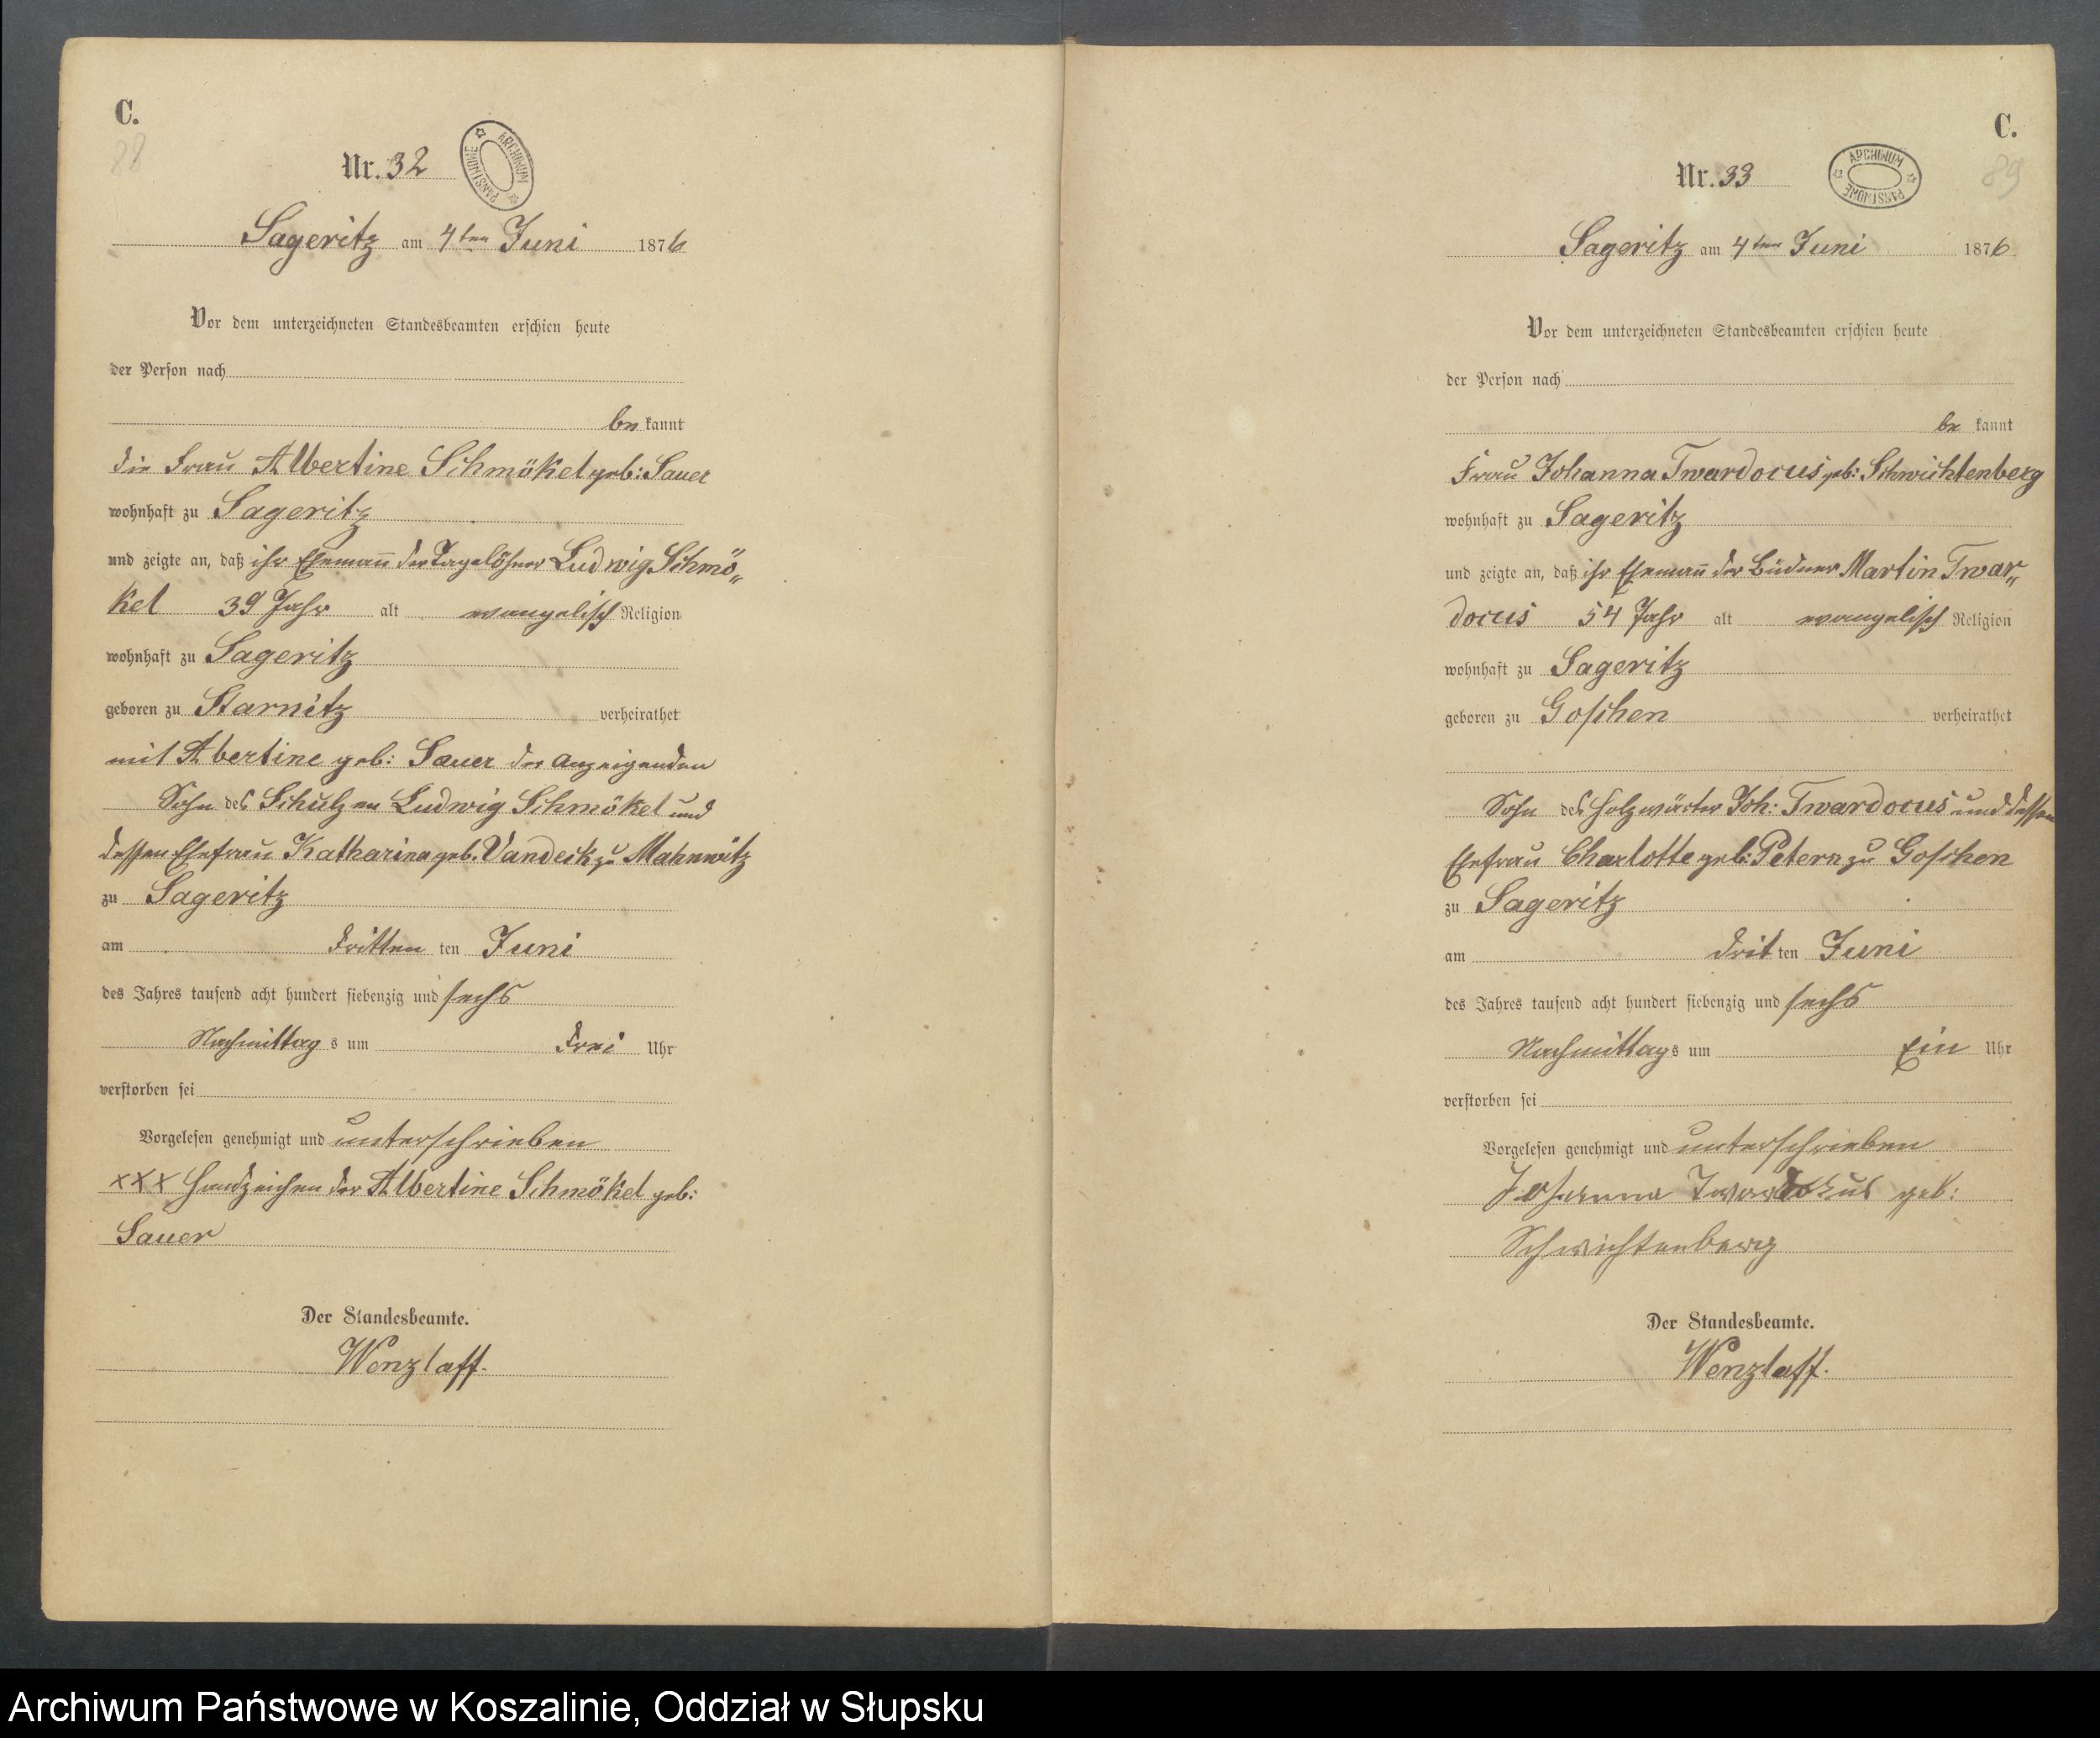 C.
88
Nr. 32
ARCHIWUM PAŃSTWOWE
Sageritz am 4ten Juni 1876
Vor dem unterzeichneten Standesbeamten erschien heute
der Person nach
be kannt
die Frau Albertine Schmökel geb: Sauer
wohnhaft zu Sageritz
und zeigte an, daß ihr Ehemann der Tagelöhner Ludwig Schmö„
kel 39 Jahr alt evangelisch Religion
wohnhaft zu Sageritz
geboren zu Starnitz verheirathet
mit Abertine geb: Sauer der anzeigenden
Sohn des Schulzen Ludwig Schmökel und
dessen Ehefrau Katharina geb. Vandesk zu Mahnwitz
zu Sageritz
am dritten ten Juni
des Jahres tausend acht hundert siebenzig und sechs
Nachmittag s um drei Uhr
verstorben sei
Vorgelesen genehmigt und unterschrieben
XXX Handzeichen der Albertine Schmökel geb:
Sauer
Der Standesbeamte.
Wenzlaff.
C.
89
Nr. 33
ARCHIWUM PAŃSTWOWE
Sageritz am 4ten Juni 1876
Vor dem unterzeichneten Standesbeamten erschien heute
der Person nach
be kannt
Frau Johanna Twardocus geb: Schwichtenberg
wohnhaft zu Sageritz
und zeigte an, daß ihr Ehemann der Büdner Martin Twar„
docus 54 Jahr alt evangelisch Religion
wohnhaft zu Sageritz
geboren zu Goschen verheirathet
Sohn des Holzwärter Joh: Twardocus und dessen
Ehefrau Charlotte geb: Petern zu Goschen
zu Sageritz
am drit ten Juni
des Jahres tausend acht hundert siebenzig und sechs
Nachmittags um Ein Uhr
verstorben sei
Vorgelesen genehmigt und unterschrieben
Johanna Twardokus geb:
Schwichtenberg
Der Standesbeamte.
Wenzlaff.
Archiwum Państwowe w Koszalinie, Oddział w Słupsku